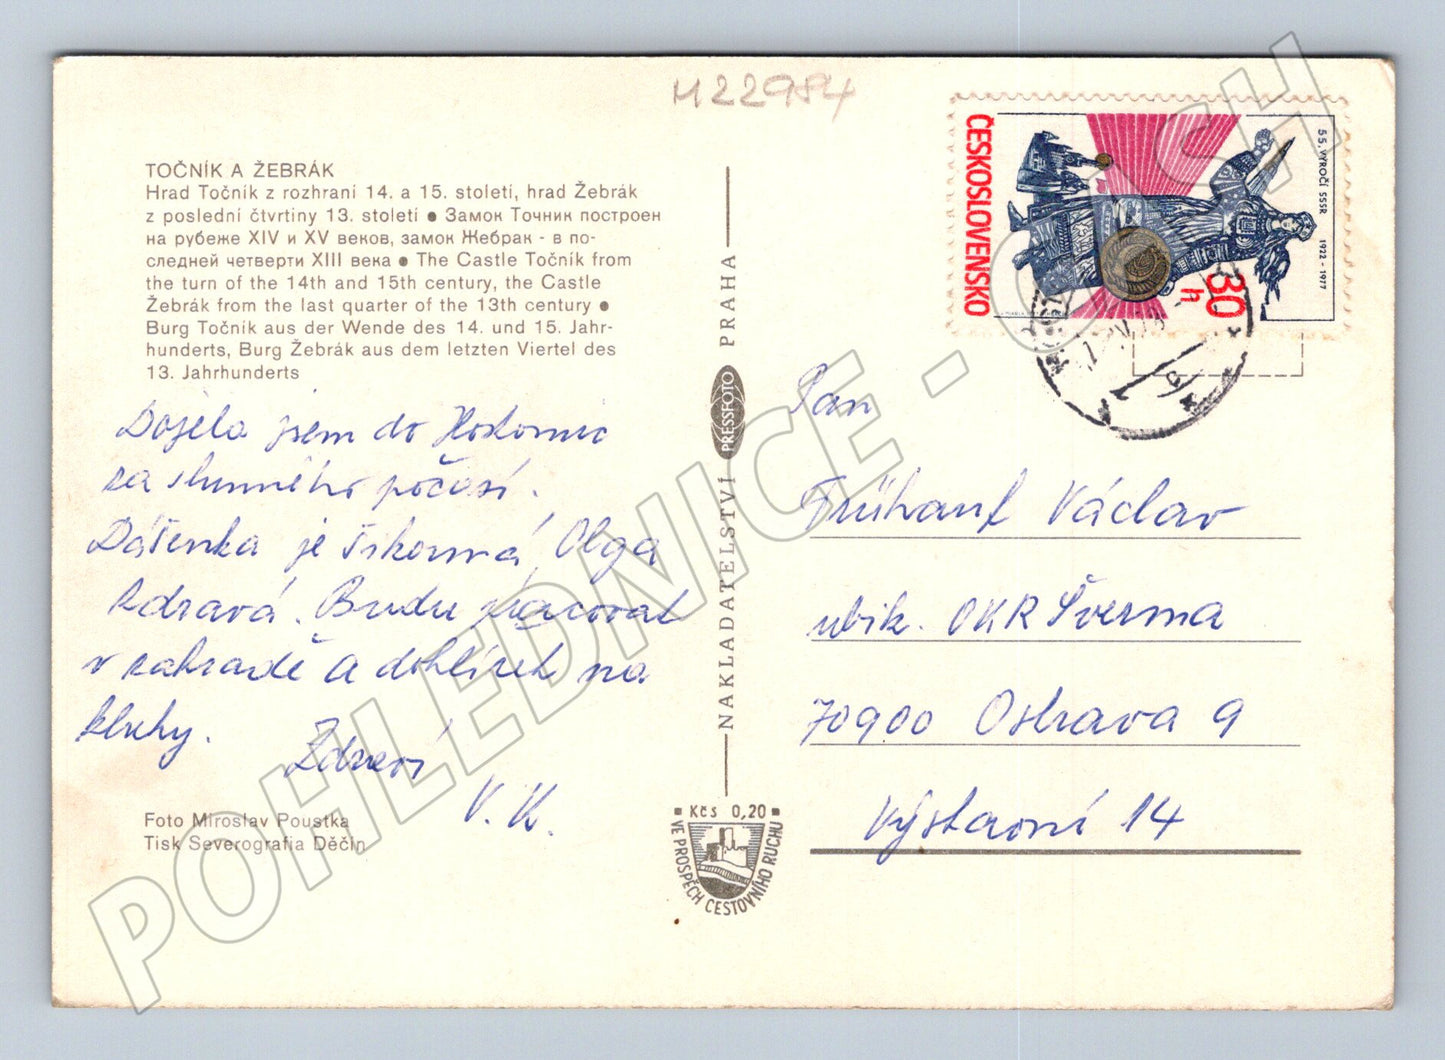 M22984
TOČNÍK A ŽEBRÁK
Hrad Točník z rozhraní 14. a 15. století, hrad Žebrák
z poslední čtvrtiny 13. století ● Замок Точник построен
на рубеже XIV и XV веков, замок Жебрак - в по-
следней четверти XIII века ● The Castle Točník from
the turn of the 14th and 15th century, the Castle
Žebrák from the last quarter of the 13th century ●
Burg Točník aus der Wende des 14. und 15. Jahr-
hunderts, Burg Žebrák aus dem letzten Viertel des
13. Jahrhunderts
Dojela jsem do Hostomic
za slunného počasí.
Dášenka je šikovná, Olga
zdravá. Budu pracovat
v zahradě a dohlížet na
kluky.
Zdraví
V. K.
Foto Miroslav Poustka
Tisk Severografia Děčín
NAKLADATELSTVÍ PRESSFOTO PRAHA
Kčs 0,20
VE PROSPĚCH CESTOVNÍHO RUCHU
ČESKOSLOVENSKO
55. VÝROČÍ SSSR 1922-1977
30 h
Pan
Frühauf Václav
ubik. OKR Šverma
70900 Ostrava 9
Výstavní 14
POHLEDNICE - O - SH